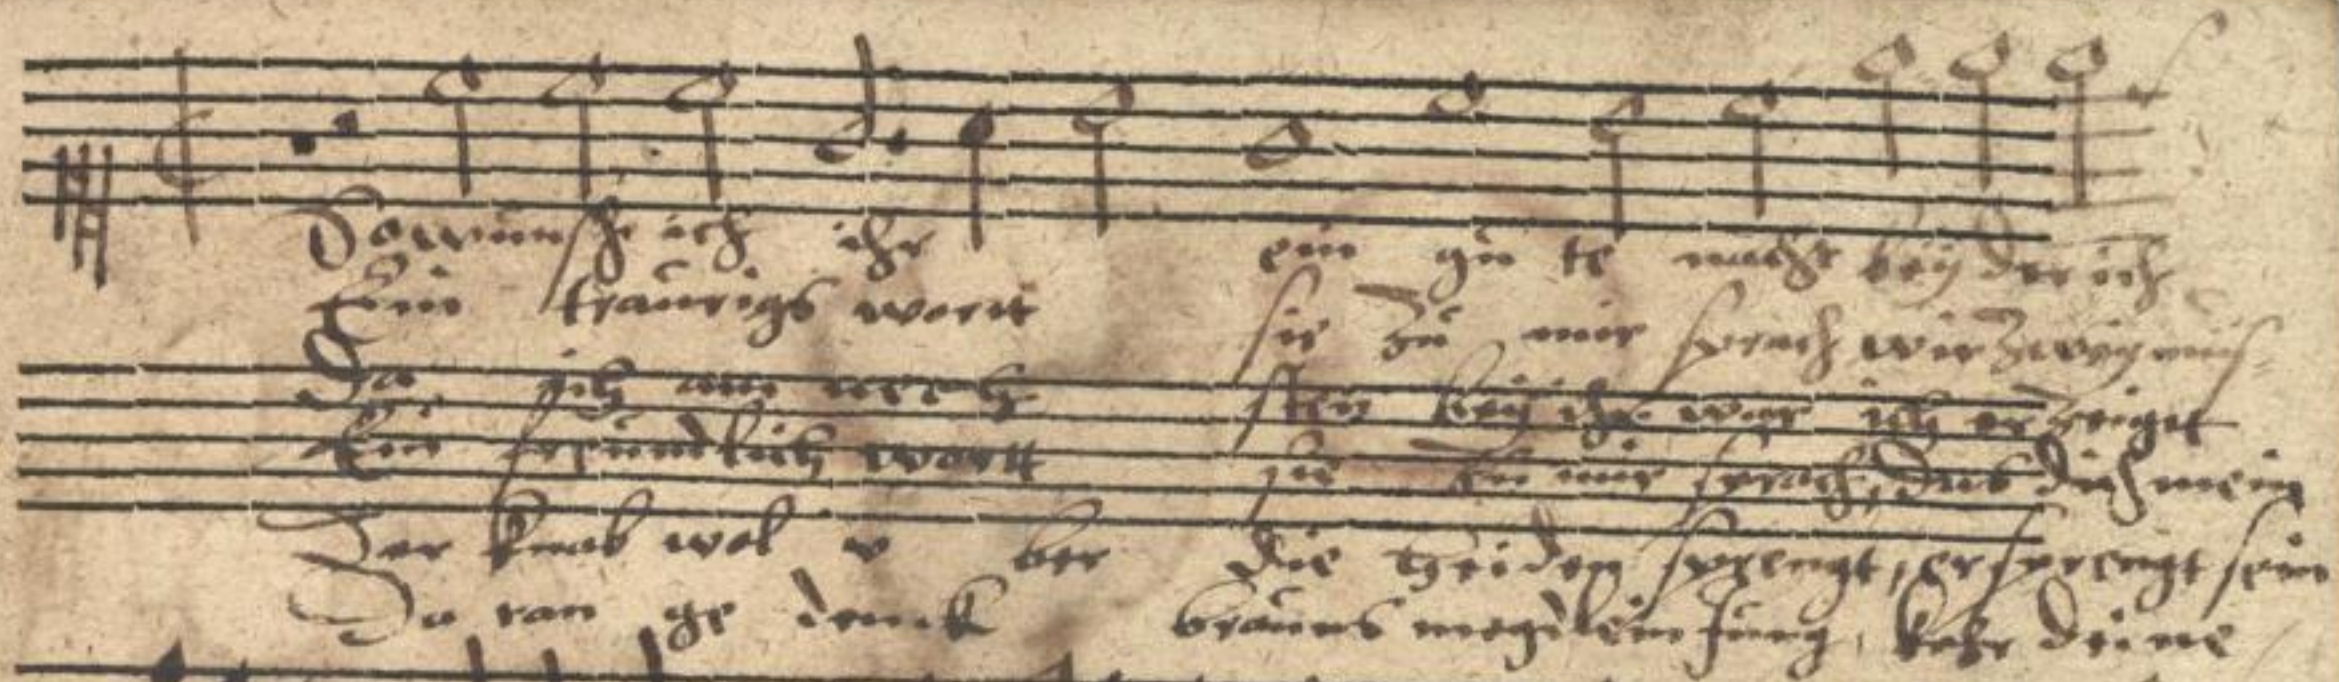 So wünsch ich ihr ein gu te nacht bey der ich
Ein traurigs wortt sie zu mir sprach wir zwey müs-
Da ich am nech sten bey ihr war ich er zeigtt
Ein freundlich wortt sie zu mir sprach, das dich mein
Der knab wol v ber die Heiden sprengt, er sprengt sein
Da ran ge denck brauns megdlein jung, kehr deine